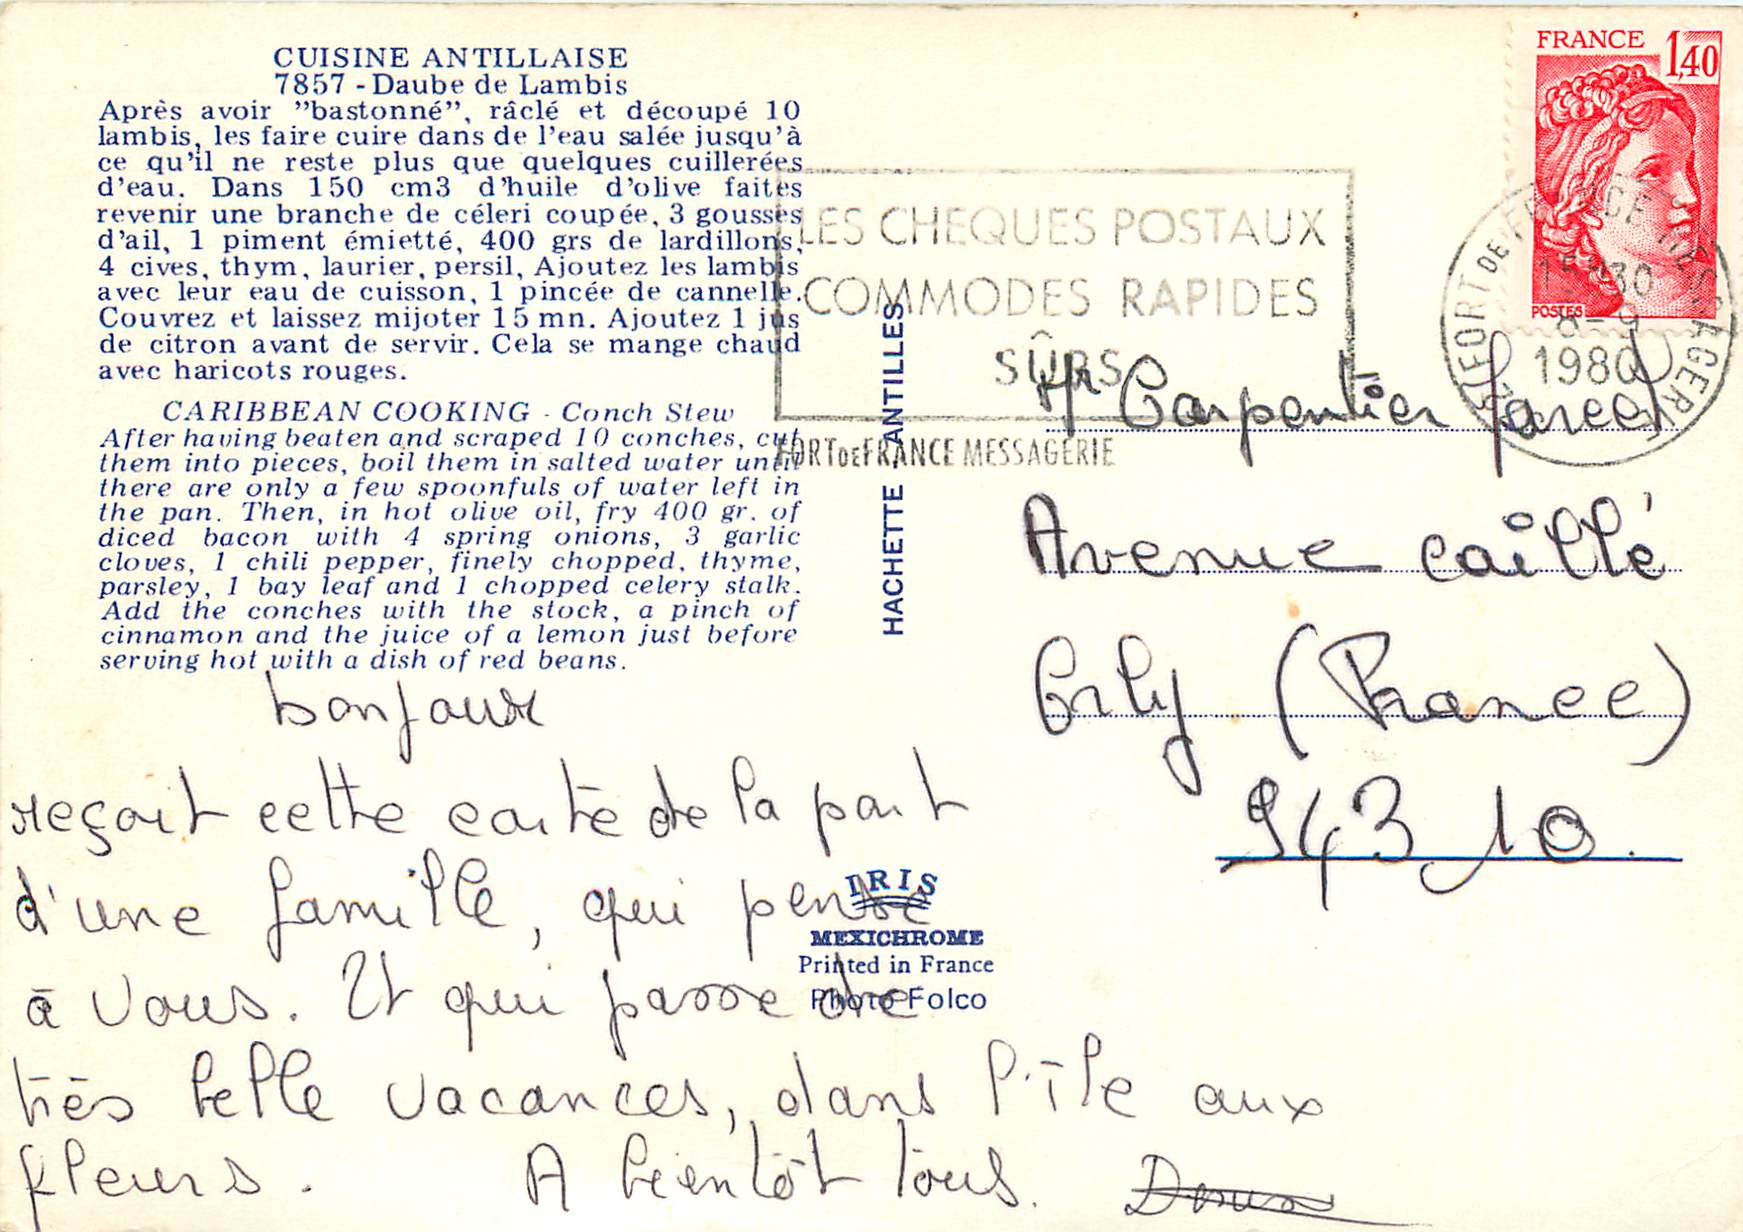 CUISINE ANTILLAISE
7857 - Daube de Lambis
Après avoir "bastonné", râclé et découpé 10
lambis, les faire cuire dans de l'eau salée jusqu'à
ce qu'il ne reste plus que quelques cuillerées
d'eau. Dans 150 cm3 d'huile d'olive faites
revenir une branche de céleri coupée, 3 gousses
d'ail, 1 piment émietté, 400 grs de lardillons,
4 cives, thym, laurier, persil, Ajoutez les lambis
avec leur eau de cuisson, 1 pincée de cannelle.
Couvrez et laissez mijoter 15 mn. Ajoutez 1 jus
de citron avant de servir. Cela se mange chaud
avec haricots rouges.
CARIBBEAN COOKING - Conch Stew
After having beaten and scraped 10 conches, cut
them into pieces, boil them in salted water until
there are only a few spoonfuls of water left in
the pan. Then, in hot olive oil, fry 400 gr. of
diced bacon with 4 spring onions, 3 garlic
cloves, 1 chili pepper, finely chopped, thyme,
parsley, 1 bay leaf and 1 chopped celery stalk.
Add the conches with the stock, a pinch of
cinnamon and the juice of a lemon just before
serving hot with a dish of red beans.
bonjour
reçoit cette carte de la part
d'une famille, qui pense
à vous. Et qui passe de
très belle vacances, dans l'île aux
fleurs. A bientôt tous.
HACHETTE ANTILLES
IRIS
MEXICHROME
Printed in France
Photo Folco
LES CHEQUES POSTAUX
COMMODES RAPIDES
SÛRS
FORT DE FRANCE MESSAGERIE
FRANCE 1,40
POSTES
FORT DE FRANCE MESSAGERIE
15H30
8-9
1980
Mr Carpentier Marcel
Avenue Caillé
Orly (France)
94310.